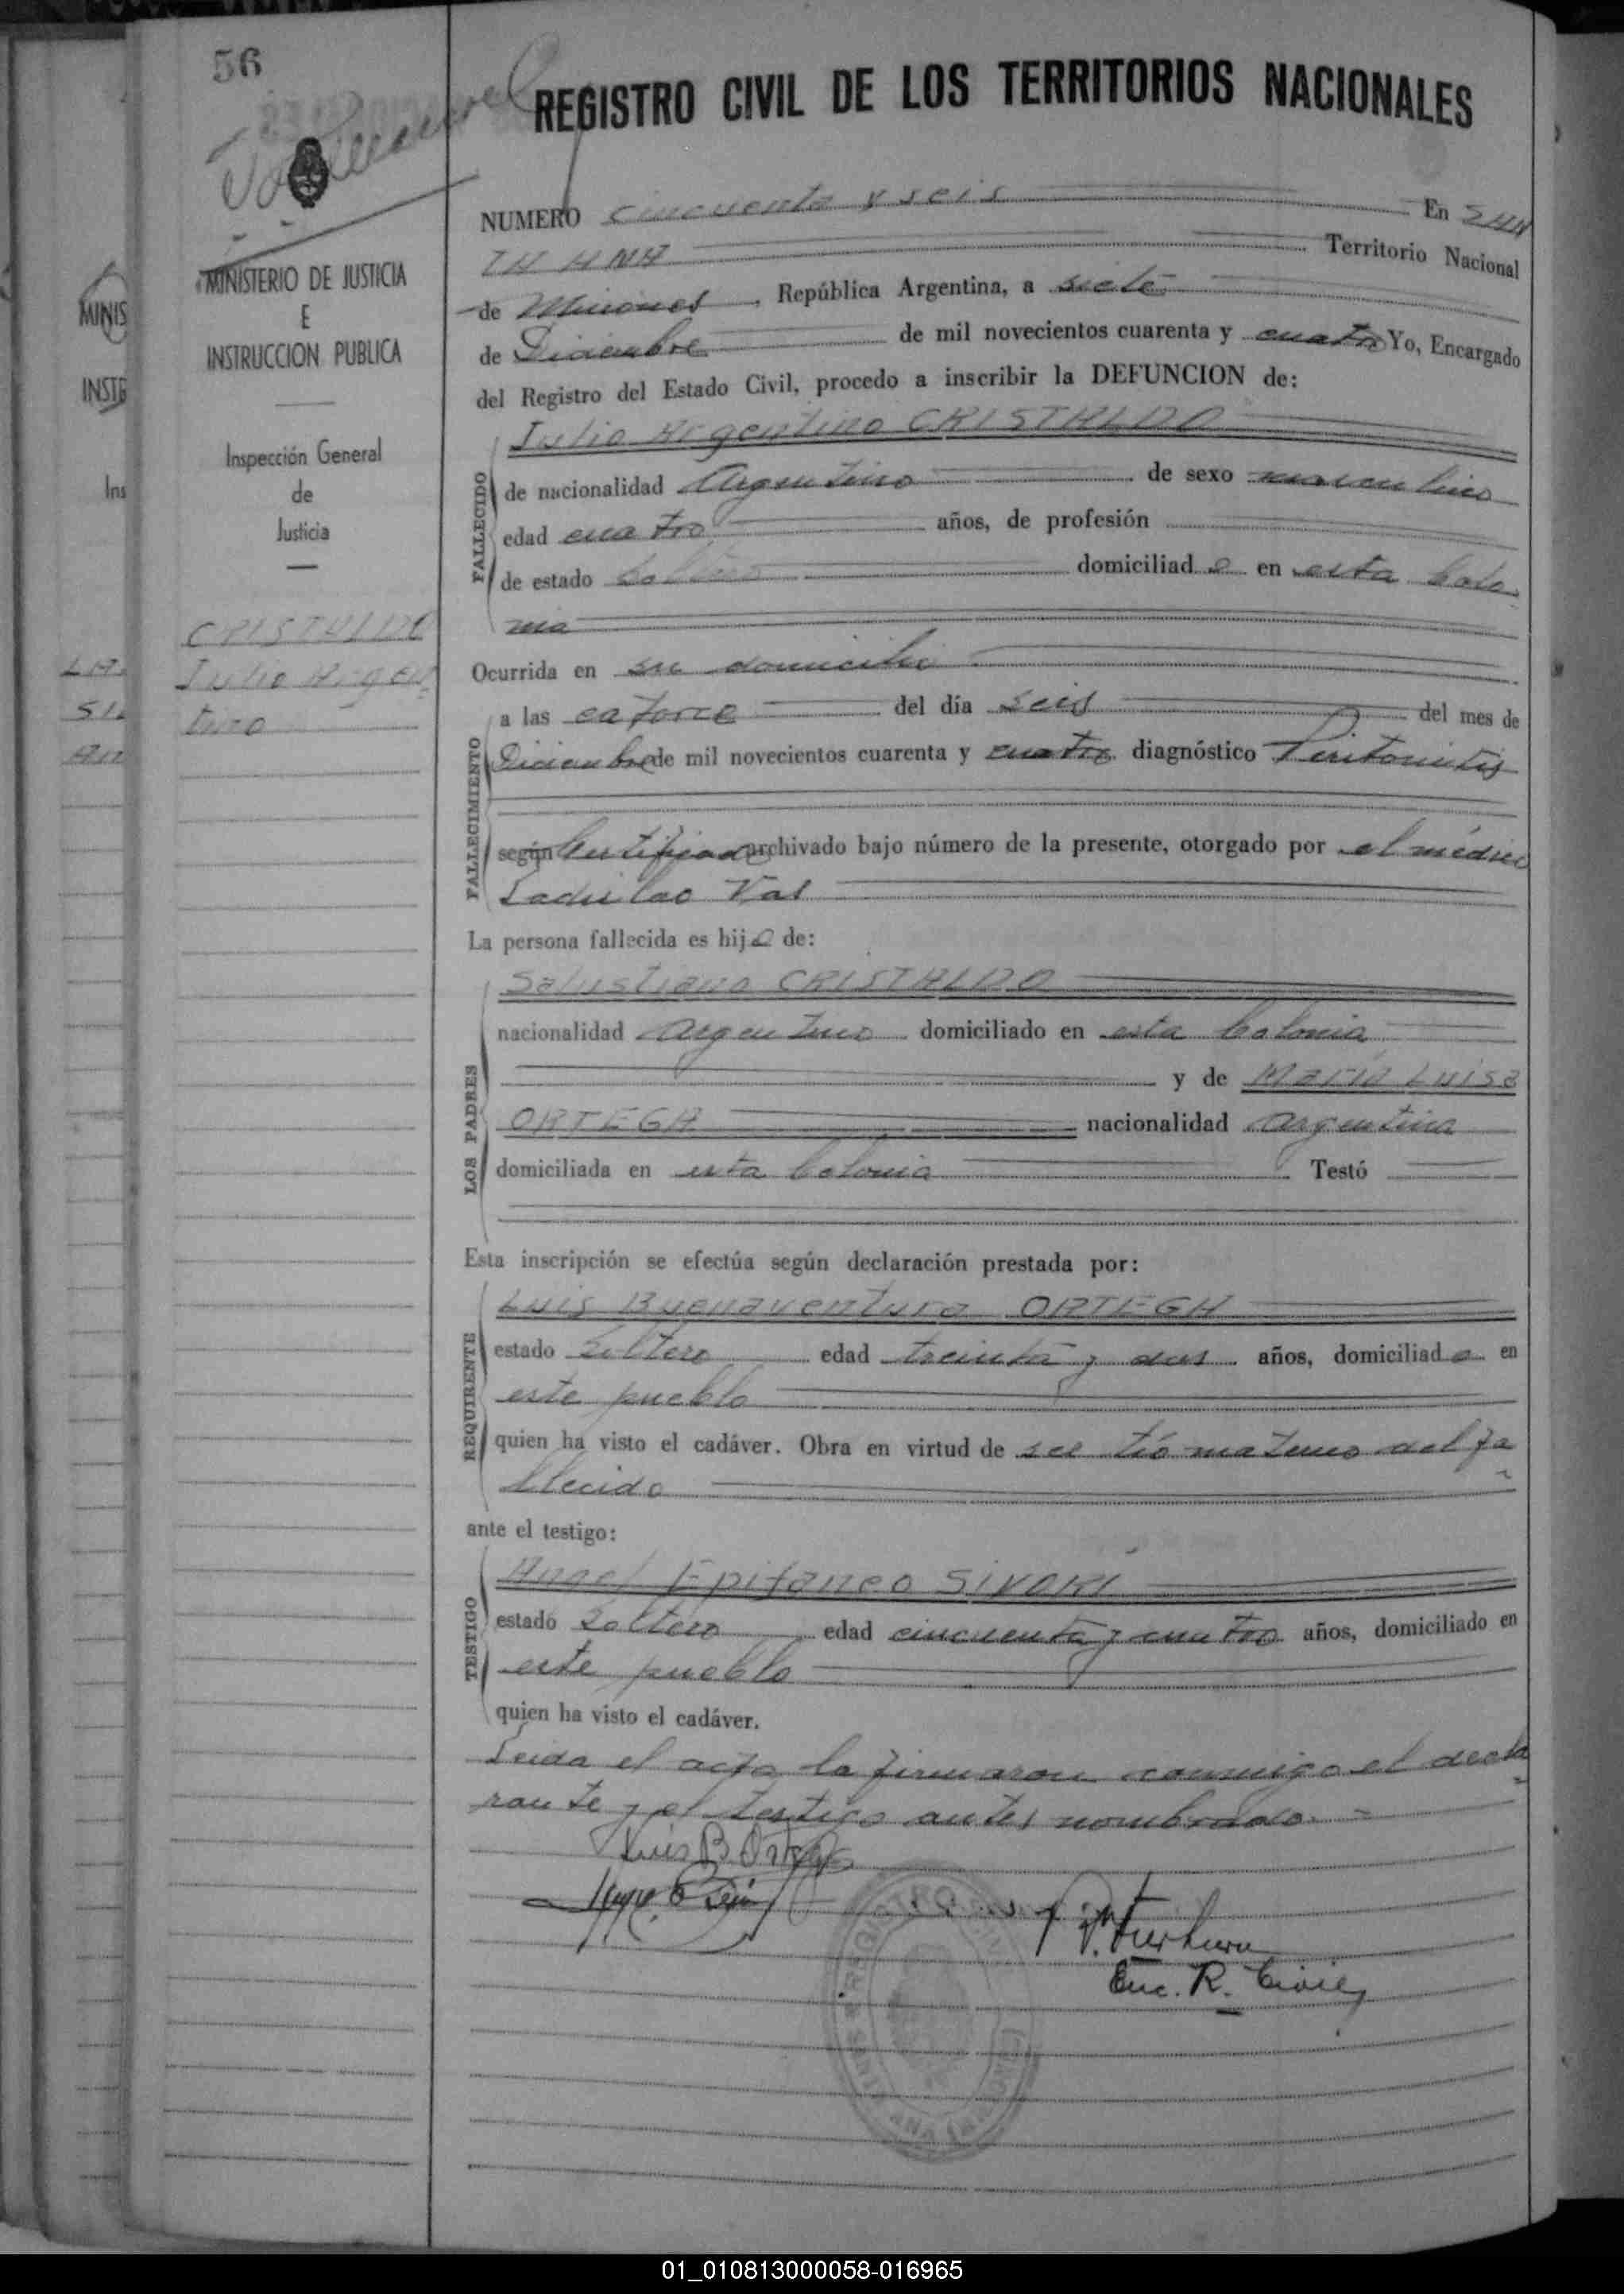 56
REGISTRO CIVIL DE LOS TERRITORIOS NACIONALES
MINISTERIO DE JUSTICIA
E
INSTRUCCION PUBLICA
Inspección General
de
Justicia
CRISTALDO
Julio Argen-
tino
NUMERO cincuenta y seis En SAN
TA ANA Territorio Nacional
de Misiones, República Argentina, a siete
de Diciembre de mil novecientos cuarenta y cuatro Yo, Encargado
del Registro del Estado Civil, procedo a inscribir la DEFUNCION de:
FALLECIDO
Julio Argentino CRISTALDO
de nacionalidad Argentino de sexo masculino
edad cuatro años, de profesión
de estado soltero domiciliado en esta Colo-
nia
Ocurrida en su domicilio
FALLECIMIENTO
a las catorce del día seis del mes de
Diciembre de mil novecientos cuarenta y cuatro diagnóstico Peritonitis
según Certificado archivado bajo número de la presente, otorgado por el médico
Ladislao Val
La persona fallecida es hijo de:
LOS PADRES
Salustiano CRISTALDO
nacionalidad Argentino domiciliado en esta Colonia
y de María Luisa
ORTEGA nacionalidad argentina
domiciliada en esta Colonia Testó
Esta inscripción se efectúa según declaración prestada por:
REQUIRENTE
Luis Buenaventura ORTEGA
estado soltero edad treinta y dos años, domiciliado en
este pueblo
quien ha visto el cadáver. Obra en virtud de ser tío materno del fa-
llecido
ante el testigo:
TESTIGO
Angel Epifaneo SIVORI
estado soltero edad cincuenta y cuatro años, domiciliado en
este pueblo
quien ha visto el cadáver.
Leida el acta la firmaron conmigo el decla-
rante y el testigo antes nombrado. =
Luis B. Ortega
Enc. R. Civil
01_010813000058-016965